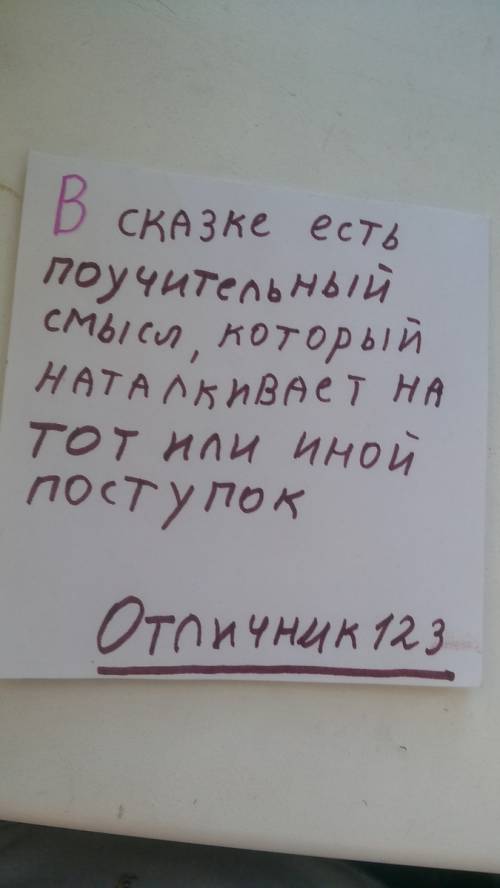 В сказке есть
поучительный
смысл, который
наталкивает на
тот или иной
поступок
Отличник123